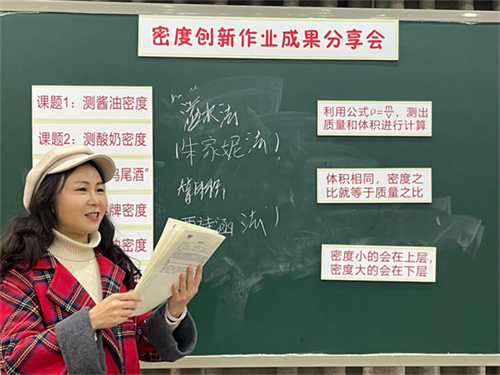 密度创新作业成果分享会
课题1：测酱油密度
课题2：测酸奶密度
鸡尾酒”
牌密度
密度
溢水法
(朱家妮法)
涵法)
利用公式ρ=m/V，测出
质量和体积进行计算
体积相同，密度之
比就等于质量之比
密度小的会在上层，
密度大的会在下层